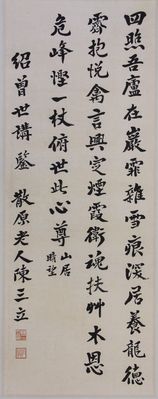 四照吾廬在巖霏雜雪痕深居養龍德
霽抱悅禽言興定煙霞衛魂扶艸木恩
危峰慳一杖俯世此心尊 山居晴望
紹曾世講鑒 散原老人陳三立